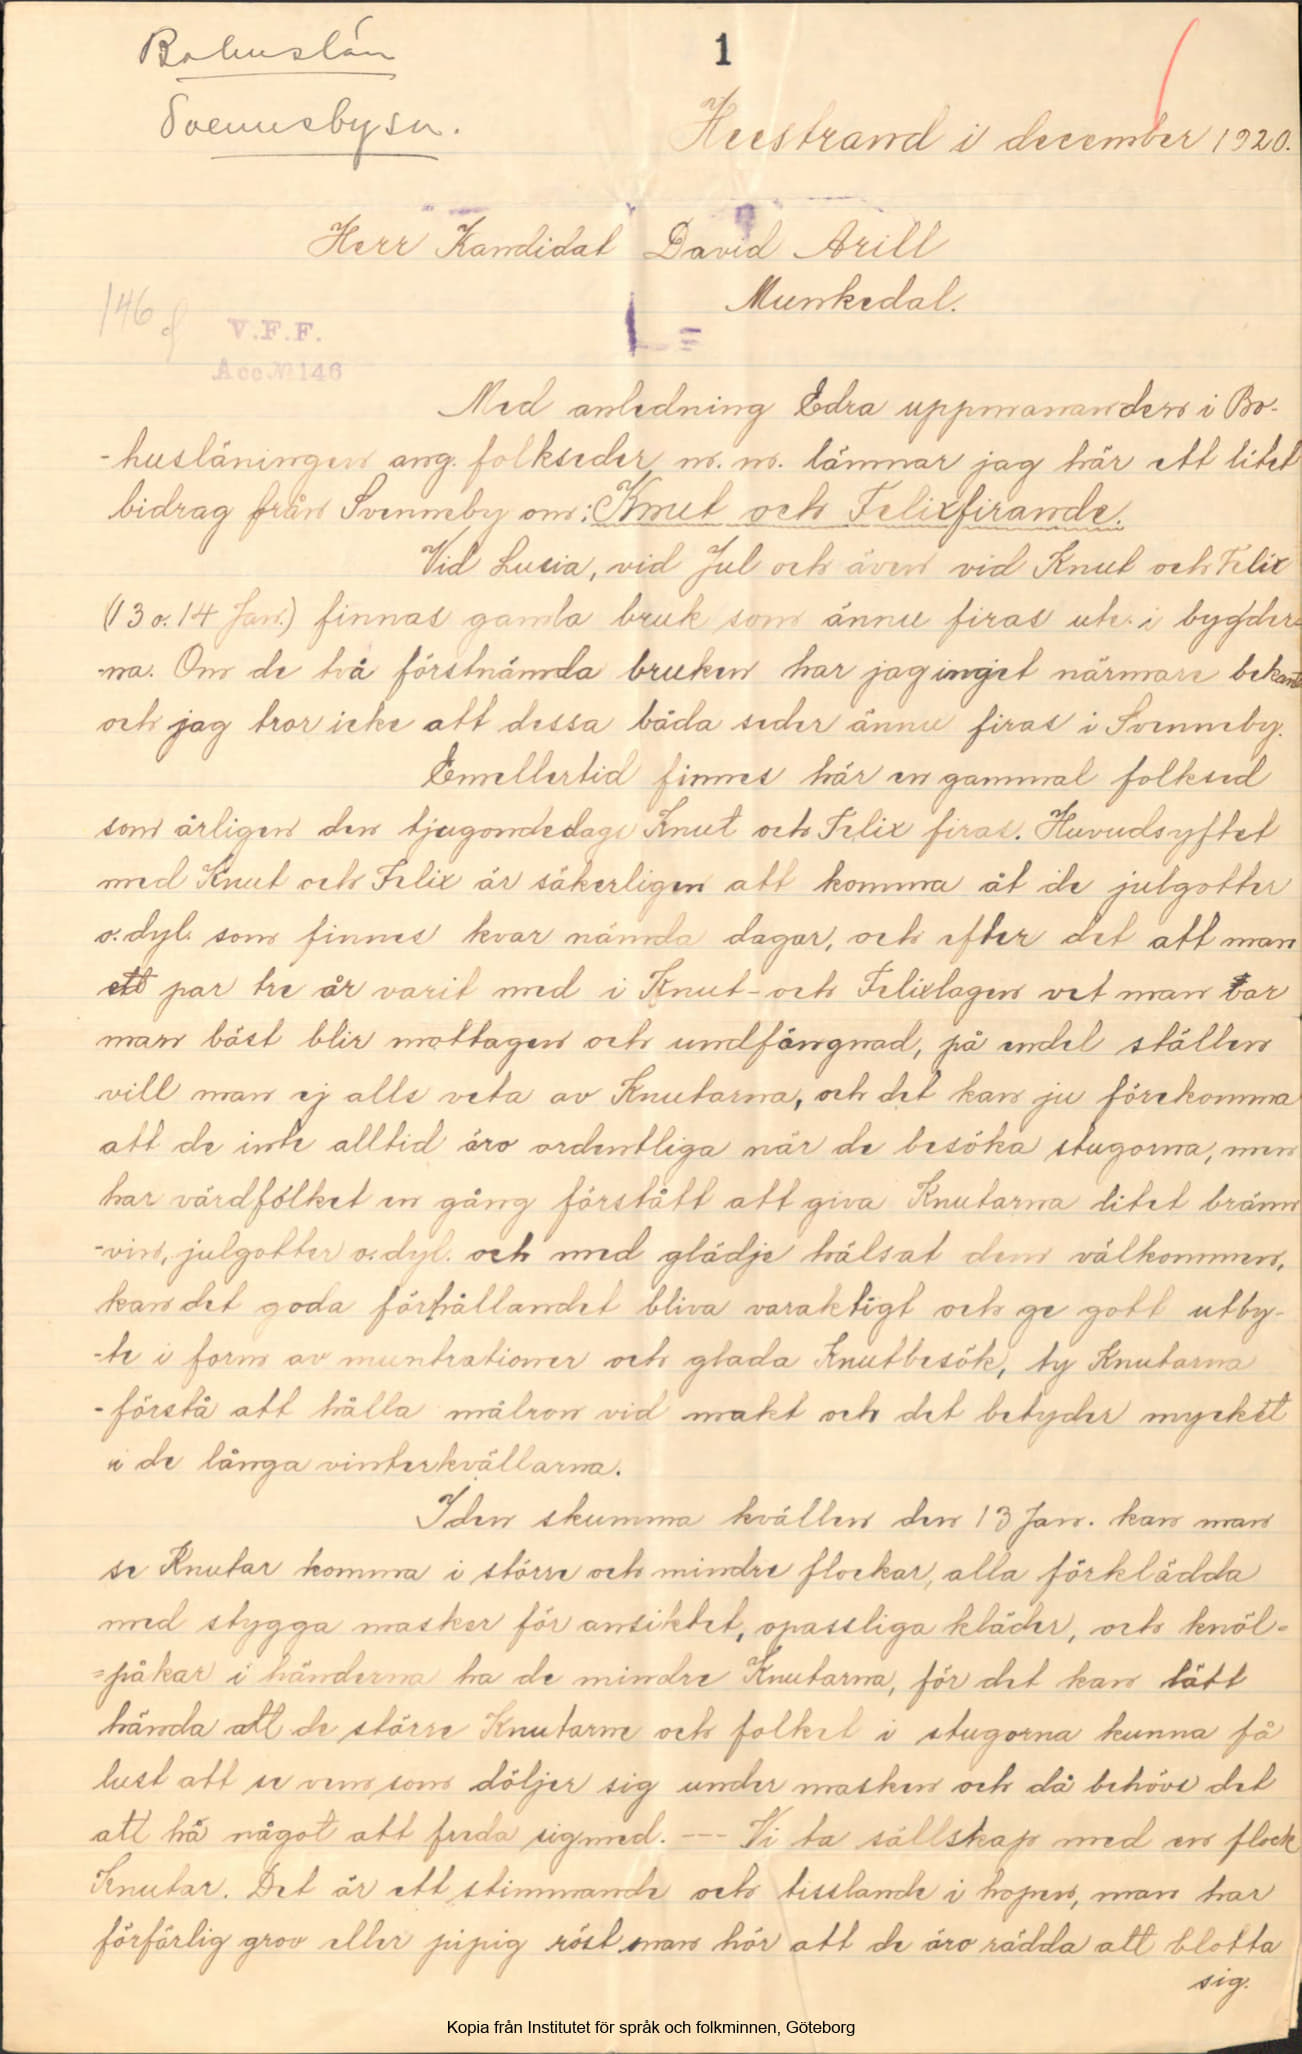 Bohuslän
1
Svennebysn.
Heestrand i december 1920.
Herr Kandidat David Arill
Munkedal.
146
V.F.F.
Acc.No 146
Med anledning Edra uppmananden i Bo-
-husläningen ang. folkseder m. m. lämnar jag här ett litet
bidrag från Svenneby om: Knut och Felixfirande.
Vid Lusia, vid Jul och även vid Knut och Felix
(13 o. 14 Jan.) finnas gamla bruk som ännu firas ute i bygder-
-na. Om de två förstnämda bruken har jag inget närmare bekant
och jag tror icke att dessa båda seder ännu firas i Svenneby.
Emellertid finnes här en gammal folksed
som årligen den tjugondedags Knut och Felix firas. Huvudsyftet
med Knut och Felix är säkerligen att komma åt de julgotter
o. dyl. som finnes kvar nämda dagar, och efter det att man
ett par tre år varit med i Knut- och Felixlagen vet man var
man bäst blir mottagen och undfängnad, på endel ställen
vill man ej alls veta av Knutarna, och det kan ju förekomma
att de inte alltid äro ordentliga när de besöka stugorna, men
har värdfolket en gång förstått att giva Knutarna litet bränn
-vin, julgotter o. dyl. och med glädje hälsat dem välkommen,
kan det goda förhållandet bliva varaktigt och ge gott utby-
-te i form av muntrationer och glada Knutbesök, ty Knutarna
-förstå att hålla målron vid makt och det betyder mycket
i de långa vinterkvällarna.
I den skumma kvällen den 13 Jan. kan man
se Knutar komma i större och mindre flockar, alla förklädda
med stygga masker för ansiktet, opassliga kläder, och knöl=
=påkar i händerna ha de mindre Knutarna, för det kan lätt
hända att de större Knutarne och folket i stugorna kunna få
lust att se vem som döljer sig under masken och då behövs det
att há något att freda sig med. --- Vi ta sällskap med en flock
Knutar. Det är ett stimmande och tisslande i hopen, man har
förfärlig grov eller pipig röst man hör att de äro rädda att blotta
sig.
Kopia från Institutet för språk och folkminnen, Göteborg